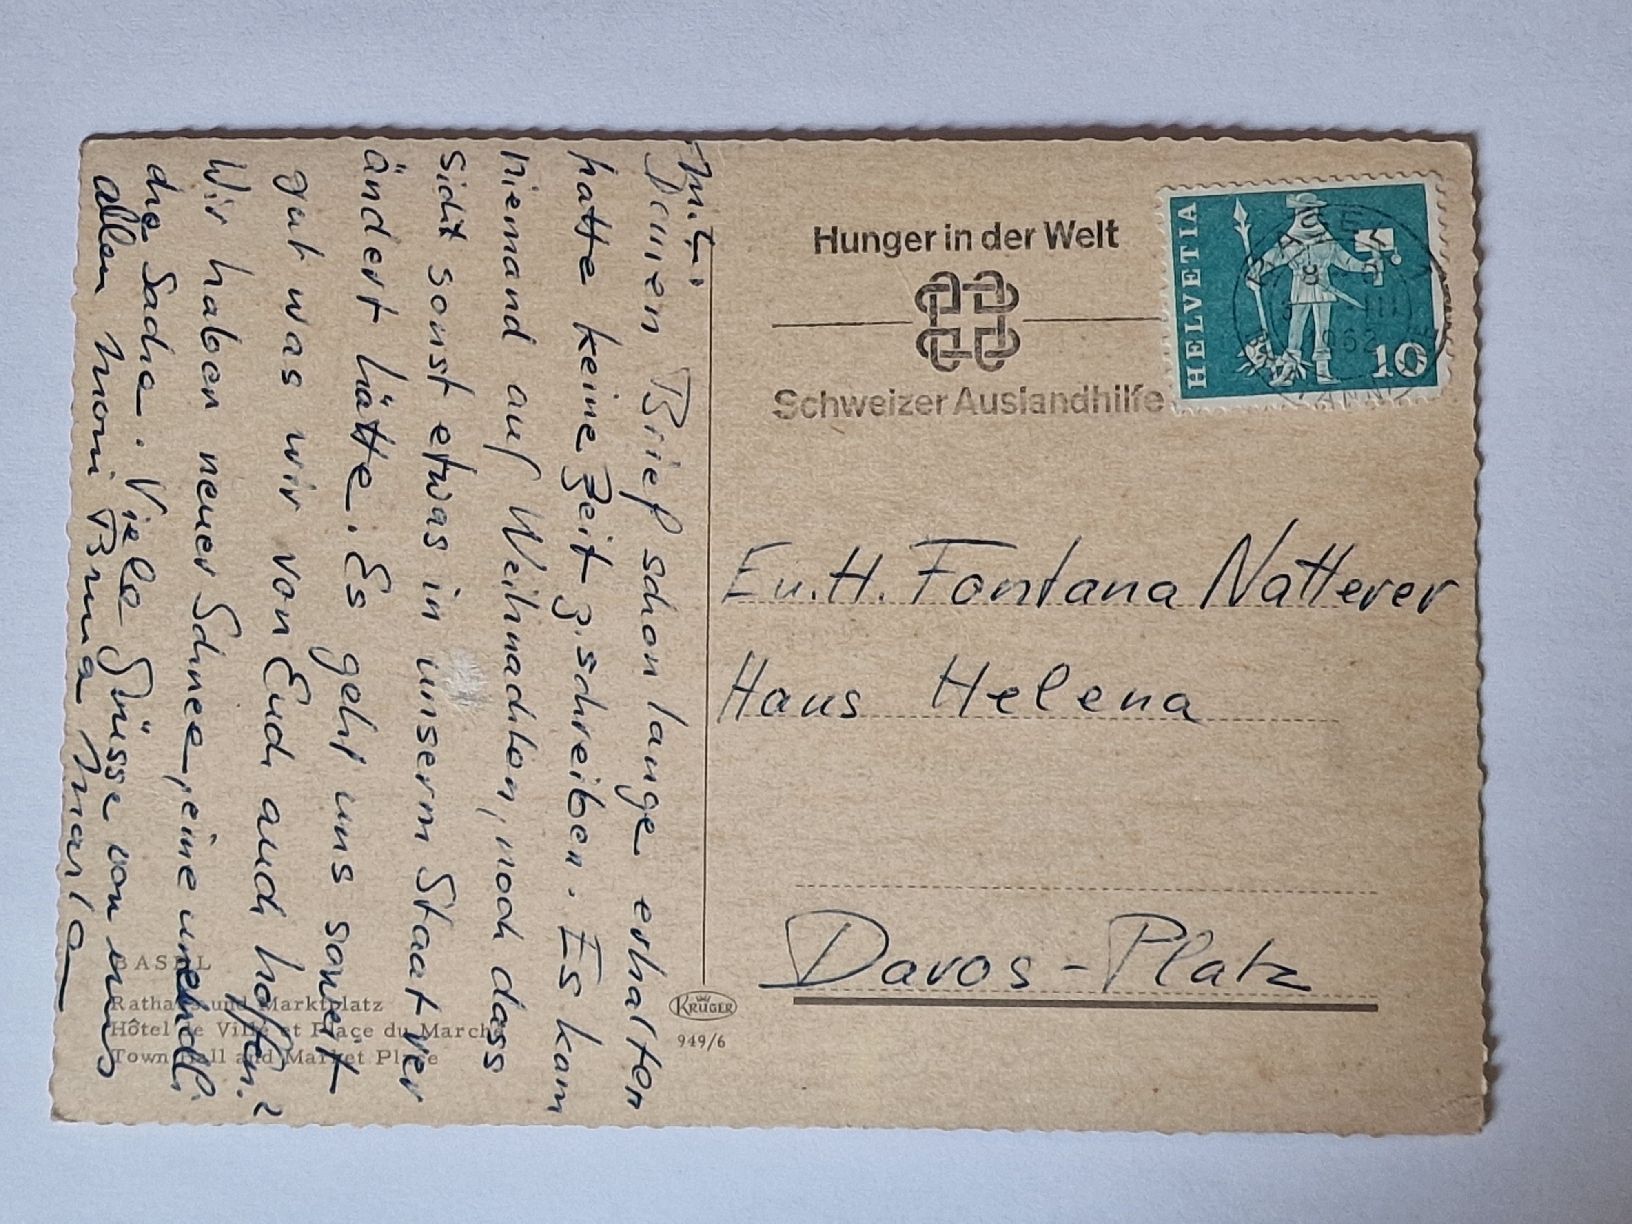 M. L!
Deinen Brief schon lange erhalten
hatte keine Zeit z. schreiben. Es kam
niemand auf Weihnachten, noch dass
sich sonst etwas in unserm Staat ver
ändert hätte. Es geht uns soweit
gut was wir von Euch auch hoffen.
Wir haben neuer Schnee, eine unendli
che Sache. Viele Grüsse von uns
allen Moni Bruna Marla
BASEL
Rathaus und Marktplatz
Hôtel de Ville et Place du Marché
Town Hall and Market Place
KRÜGER
949/6
Hunger in der Welt
Schweizer Auslandhilfe
HELVETIA
10
BASEL
III
1962
E u. H. Fontana Natterer
Haus Helena
Davos - Platz